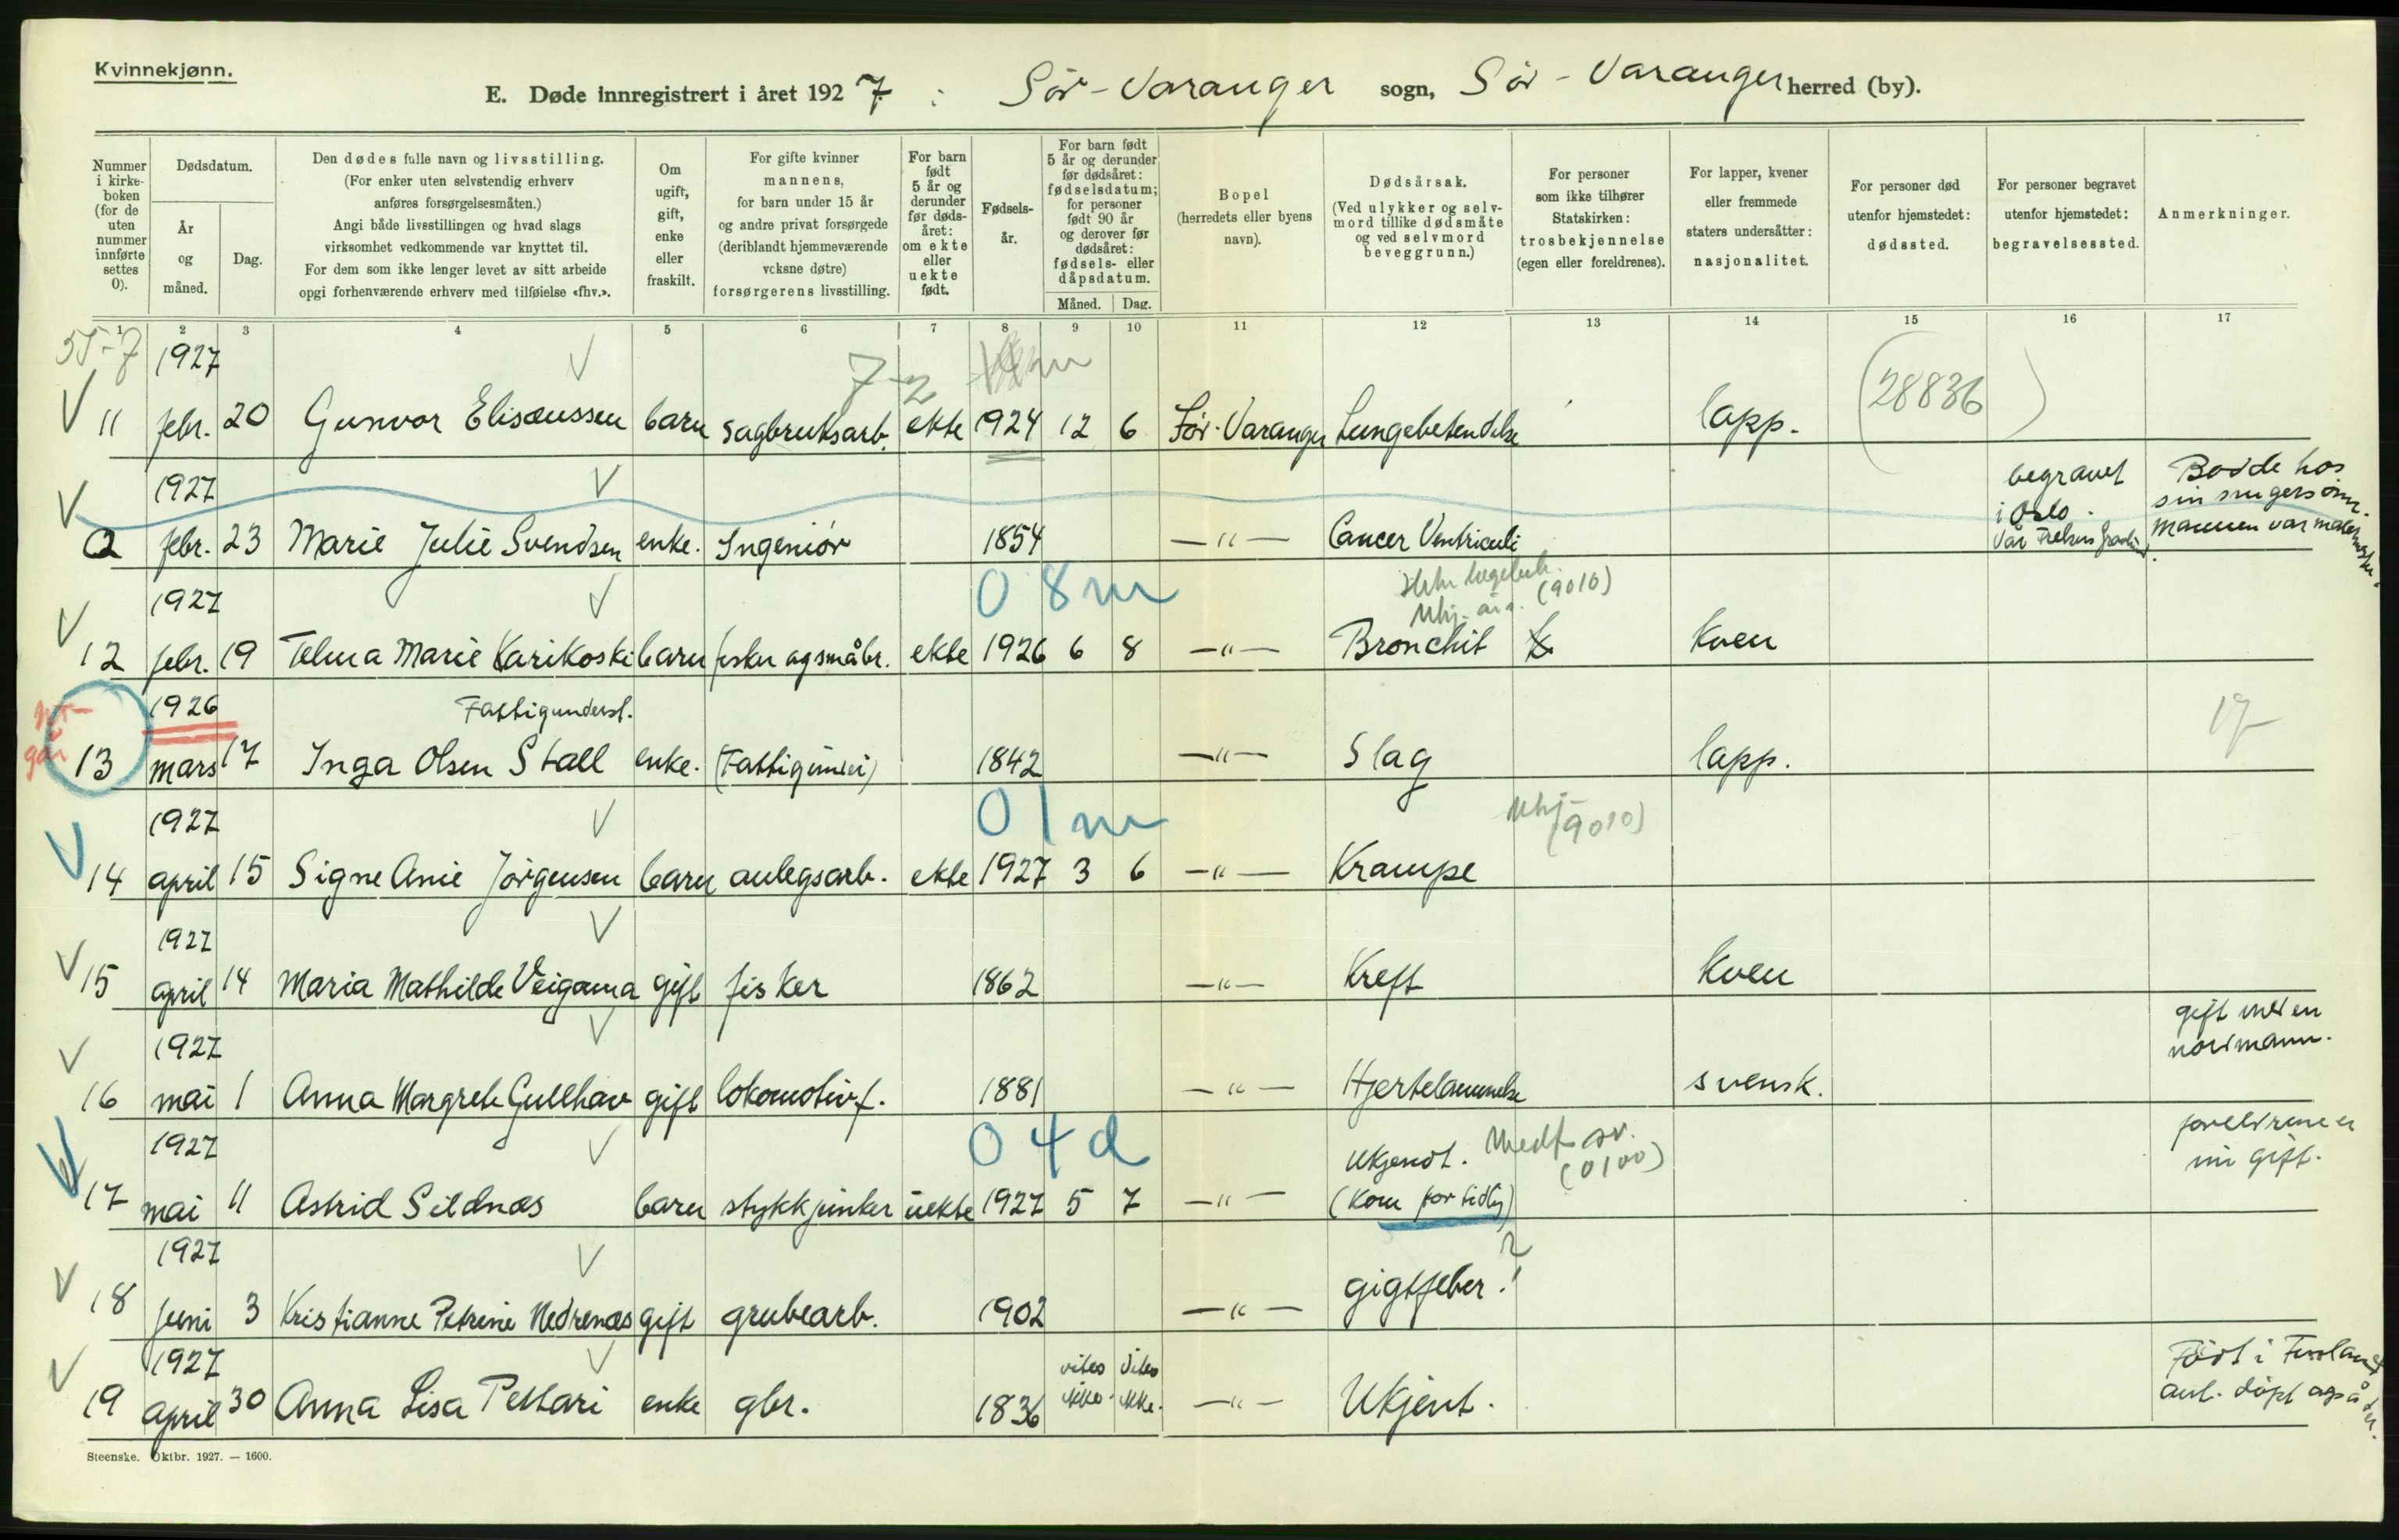 Kvinnekjønn.
E. Døde innregistrert i året 1927 : Sör-Varanger sogn, Sör-Varanger herred (by).
Nummer i kirkeboken (for de uten nummer innførte settes 0).
Dødsdatum.
År og måned.
Dag.
Den dødes fulle navn og livsstilling.
(For enker uten selvstendig erhverv anføres forsørgelsesmåten.)
Angi både livsstillingen og hvad slags virksomhet vedkommende var knyttet til.
For dem som ikke lenger levet av sitt arbeide opgi forhenværende erhverv med tilføielse «fhv.».
Om ugift, gift, enke eller fraskilt.
For gifte kvinner mannens, for barn under 15 år og andre privat forsørgede (deriblandt hjemmeværende voksne døtre) forsørgerens livsstilling.
For barn født 5 år og derunder før dødsåret: om ekte eller uekte født.
Fødselsår.
For barn født 5 år og derunder før dødsåret: fødselsdatum; for personer født 90 år og derover før dødsåret: fødsels- eller dåpsdatum.
Måned. Dag.
Bopel (herredets eller byens navn).
Dødsårsak.
(Ved ulykker og selvmord tillike dødsmåte og ved selvmord beveggrunn.)
For personer som ikke tilhører Statskirken: trosbekjennelse (egen eller foreldrenes).
For lapper, kvener eller fremmede staters undersåtter: nasjonalitet.
For personer død utenfor hjemstedet: dødssted.
For personer begravet utenfor hjemstedet: begravelsessted.
Anmerkninger.
1 2 3 4 5 6 7 8 9 10 11 12 13 14 15 16 17
55-7 1927 7-2
11 febr. 20 Gunvor Elisæussen barn sagbruksarb. ekte 1924 12 6 Sör-Varanger Lungebetendelse lapp. (28836)
1927 begravet i Oslo. Vår Frelsers Bodde hos sin svigersönn. Mannen var
0 febr. 23 Marie Julie Svendsen enke. Ingeniör 1854 —"— Cancer Ventriculi
1927 0 8 m (9010)
12 febr. 19 Telma Marie Karikoski barn fisker og småbr. ekte 1926 6 8 —"— Bronchit Kven
1926 Fattigunderst. 17
13 mars 17 Inga Olsen Stall enke. 1842 —"— Slag lapp.
1927 0 1 m Uhj. (9010)
14 april 15 Signe Anie Jörgensen barn anlegsarb. ekte 1927 3 6 —"— Krampe
1927
15 april 14 Maria Mathilde Veigama gift fisker 1862 —"— Kreft Kven
1927 gift med en nordmann.
16 mai 1 Anna Margrete Gullhav gift lokomotivf. 1881 —"— Hjertelammelse svensk.
1927 0 4 d Ukjendt. Medf. sv. (0100) foreldrene er nu gift.
17 mai 11 Astrid Sildnæs barn stykkjunker uekte 1927 5 7 —"— (Kom for tidlig)
1927 ?
18 juni 3 Kristianne Petrine Nedrenæs gift grubearb. 1902 —"— gigtfeber!
1927 vites ikke. vites ikke. Födt i Finland ant. döpt også der.
19 april 30 Anna Lisa Pettari enke gbr. 1836 —"— Ukjent.
Steenske. Oktbr. 1927. — 1600.